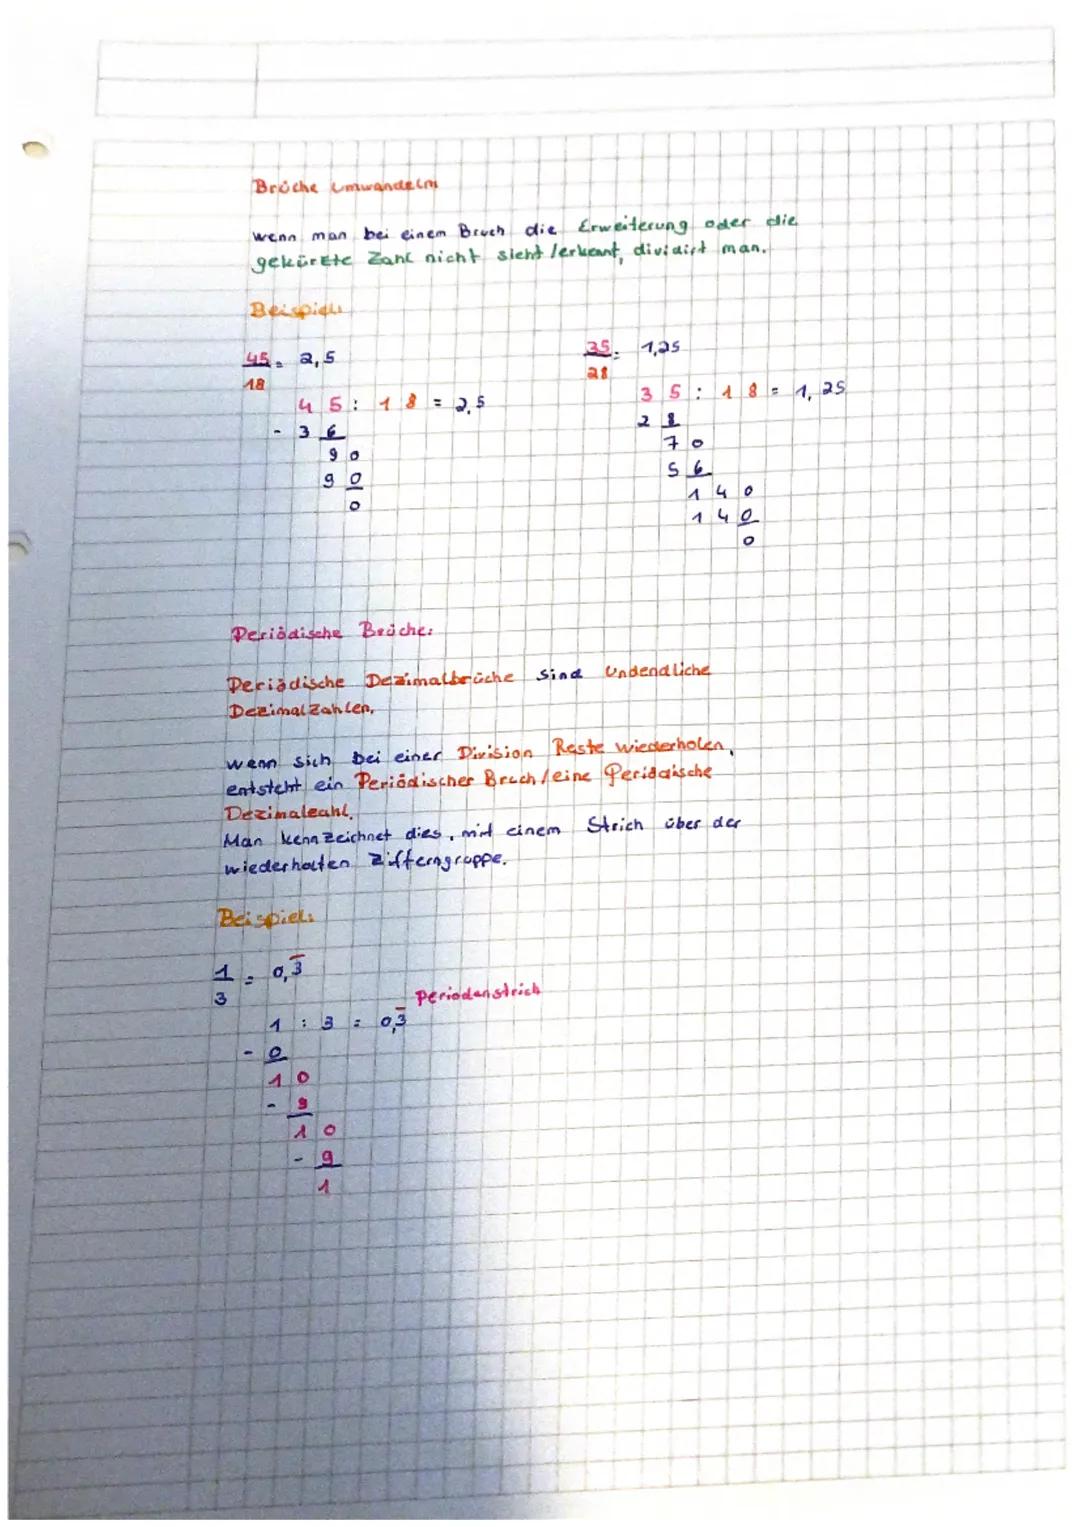 Brüche umwandeln
wenn man bei einem Bruch die Erweiterung oder die
gekürzte Zahl nicht sieht/erkennt, dividirt man.
Beispiel:
45 = 2,5
18
45 : 18 = 2,5
- 36
90
90
0
35 = 1,25
28
35 : 18 = 1,25
28
70
56
140
140
0
Periodische Brüche:
Periodische Dezimalbrüche sind Undendliche
Dezimalzahlen.
wenn sich bei einer Division Reste wiederholen,
entsteht ein Periodischer Bruch/eine Periodische
Dezimalzahl.
Man kennzeichnet dies, mit einem Strich über der
wiederholten Zifferngruppe.
Beispiel:
1 = 0,3̅
3
Periodenstrich
1 : 3 = 0,3̅
- 0
10
- 9
10
- 9
1